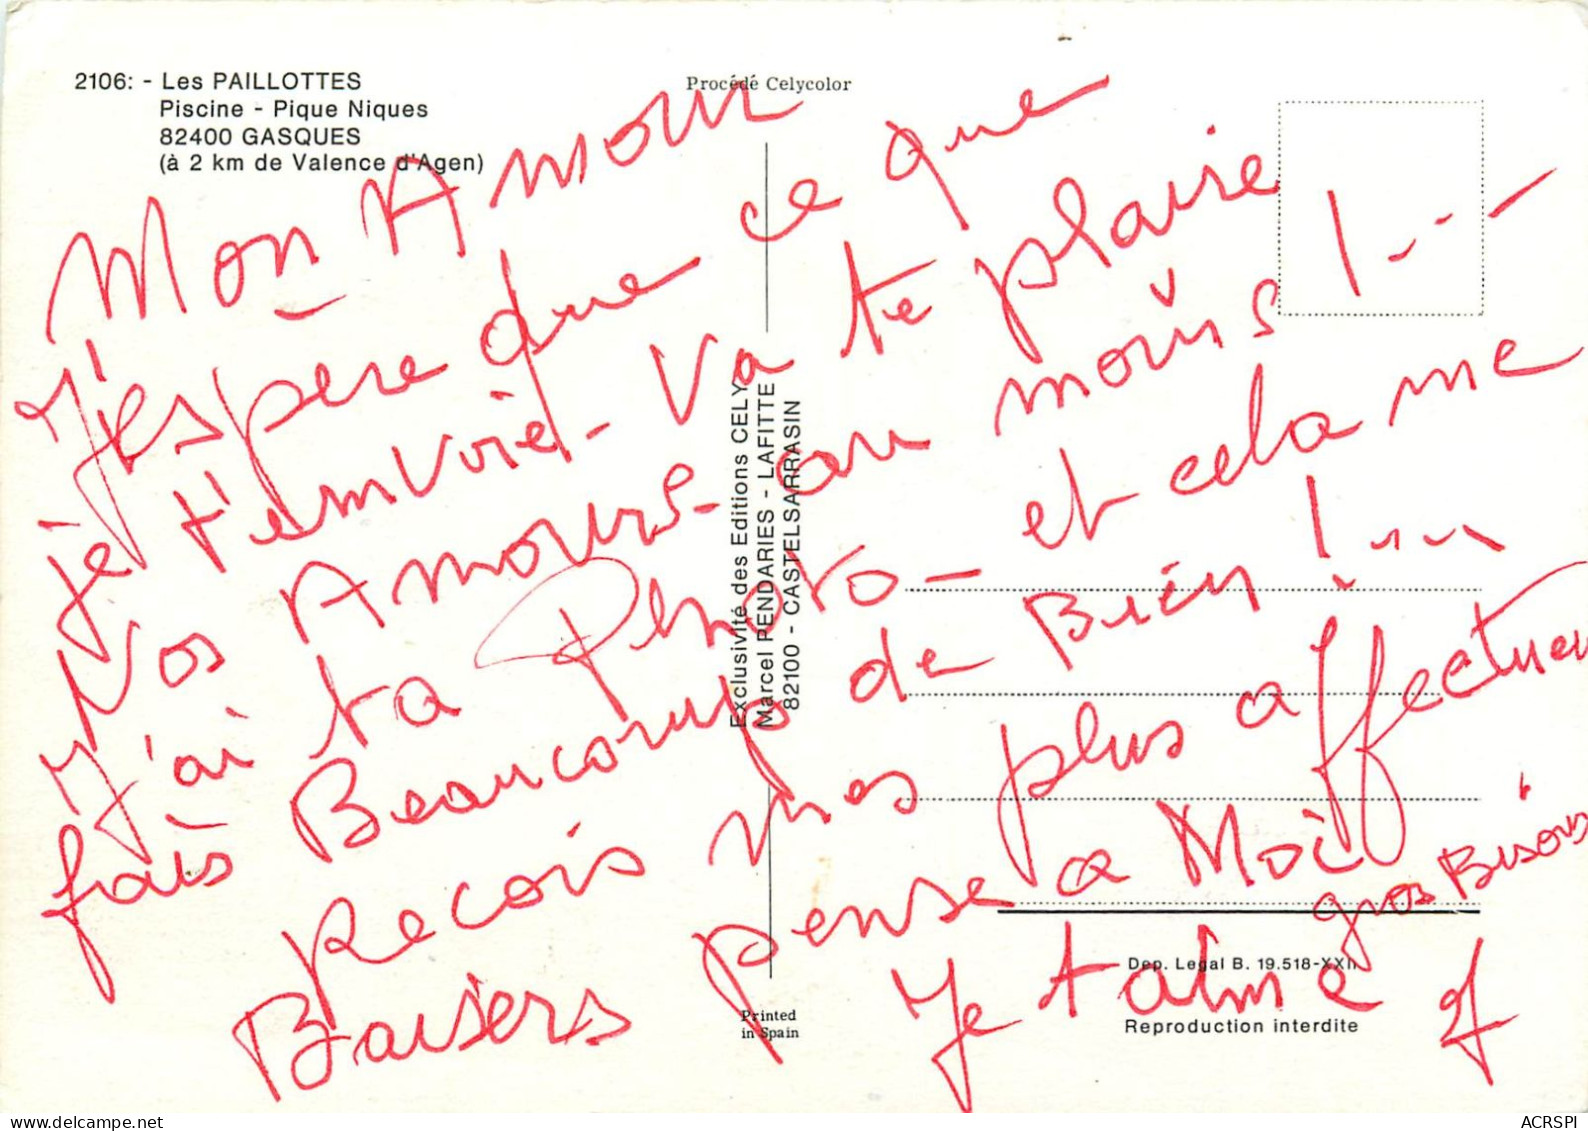 2106: - Les PAILLOTTES
Piscine - Pique Niques
82400 GASQUES
(à 2 km de Valence d'Agen)
Procédé Celycolor
Mon Amour
J'espère que ce que
je t'envoie - Va te plaire
Nos Amours - au moins !---
J'ai ta Photo - et cela me
fais Beaucoup de Bien !...
Recois mes plus affectueux
Baisers pense a Moi
gros Bisous
Je t'aime
Exclusivité des Editions CELY
Marcel PENDARIES - LAFITTE
82100 - CASTELSARRASIN
Dep. Legal B. 19.518-XXII
Reproduction interdite
Printed
in Spain
ACRSPI